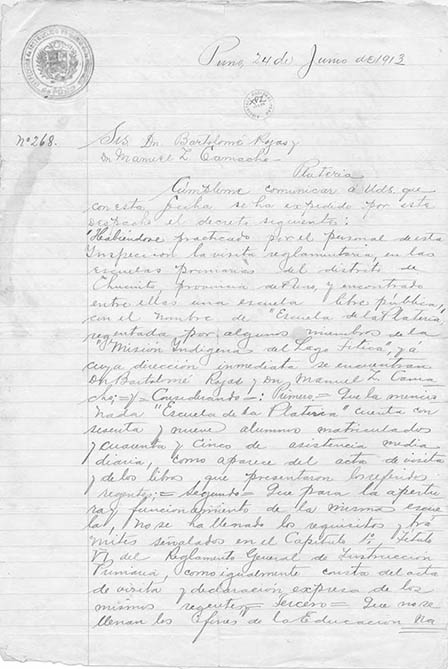 Puno, 24 de Junio de 1913
Nº 268.
Srs Dn Bartolomé Rojas y
Dn Manuel Z Camacho.
Plateria
Cumpleme comunicar á Uds. que
con esta fecha se ha expedido por este
despacho el decreto siguiente:
"Habiéndose practicado por el personal de esta
Inspección la visita reglamentaria, en las
escuelas primarias del distrito de
Chucuito, provincia de Puno, y encontrado
entre ellas una escuela libre pública,
con el nombre de "Escuela de la Plateria",
regentada por algunos miembros de la
"Misión Indígena del Lago Titicaca", y á
cuya dirección inmediata se encuentran
Dn Bartolomé Rojas y Dn Manuel Z Cama
cho; =y= Considerando =: Primero = Que la mencio
nada "Escuela de la Plateria" cuenta con
sesenta y nueve alumnos matriculados
y cuarenta y cinco de asistencia media
diaria, como aparece del acta de visita
y de los libros que presentaron los referidos
regentes; = Segundo = Que para la apertu
ra y funcionamiento de la misma escue
la, no se ha llenado los requisitos y trá
mites señalados en el Capítulo 1º, Título
VI, del Reglamento General de Instrucción
Primaria, como igualmente consta del acta
de visita y declaración expresa de los
mismos regentes = Tercero = Que no se
llenan los fines de la Educación Na